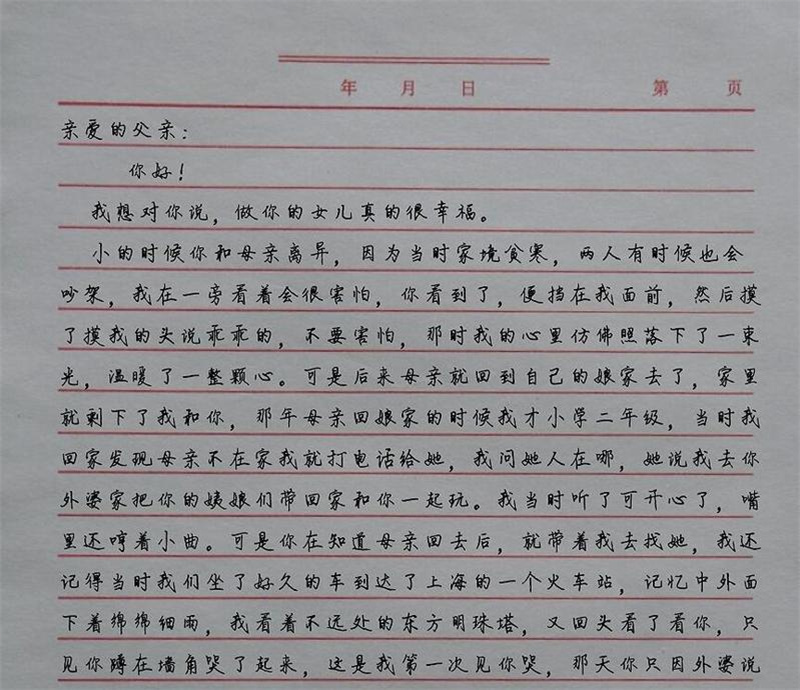 年 月 日 第 页
亲爱的父亲：
你好！
我想对你说，做你的女儿真的很幸福。
小的时候你和母亲离异，因为当时家境贫寒，两人有时候也会
吵架，我在一旁看着会很害怕，你看到了，便挡在我面前，然后摸
了摸我的头说乖乖的，不要害怕，那时我的心里仿佛照落下了一束
光，温暖了一整颗心。可是后来母亲就回到自己的娘家去了，家里
就剩下了我和你，那年母亲回娘家的时候我才小学二年级，当时我
回家发现母亲不在家我就打电话给她，我问她人在哪，她说我去你
外婆家把你的姨娘们带回家和你一起玩。我当时听了可开心了，嘴
里还哼着小曲。可是你在知道母亲回去后，就带着我去找她，我还
记得当时我们坐了好久的车到达了上海的一个火车站，记忆中外面
下着绵绵细雨，我看着不远处的东方明珠塔，又回头看了看你，只
见你蹲在墙角哭了起来，这是我第一次见你哭，那天你只因外婆说